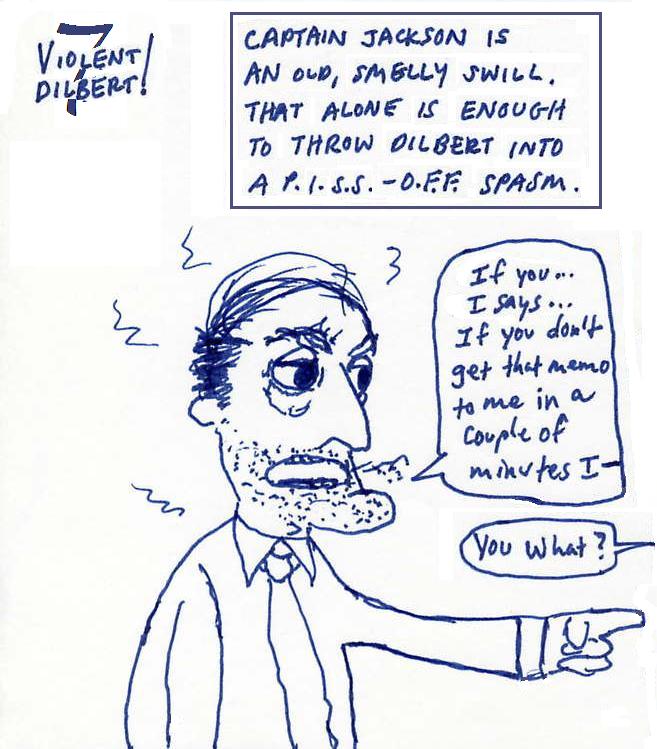 7
VIOLENT
DILBERT!
CAPTAIN JACKSON IS
AN OLD, SMELLY SWILL.
THAT ALONE IS ENOUGH
TO THROW DILBERT INTO
A P.I.S.S.-O.F.F. SPASM.
If you...
I SAYS...
If you don't
get that memo
to me in a
couple of
minutes I-
You what?